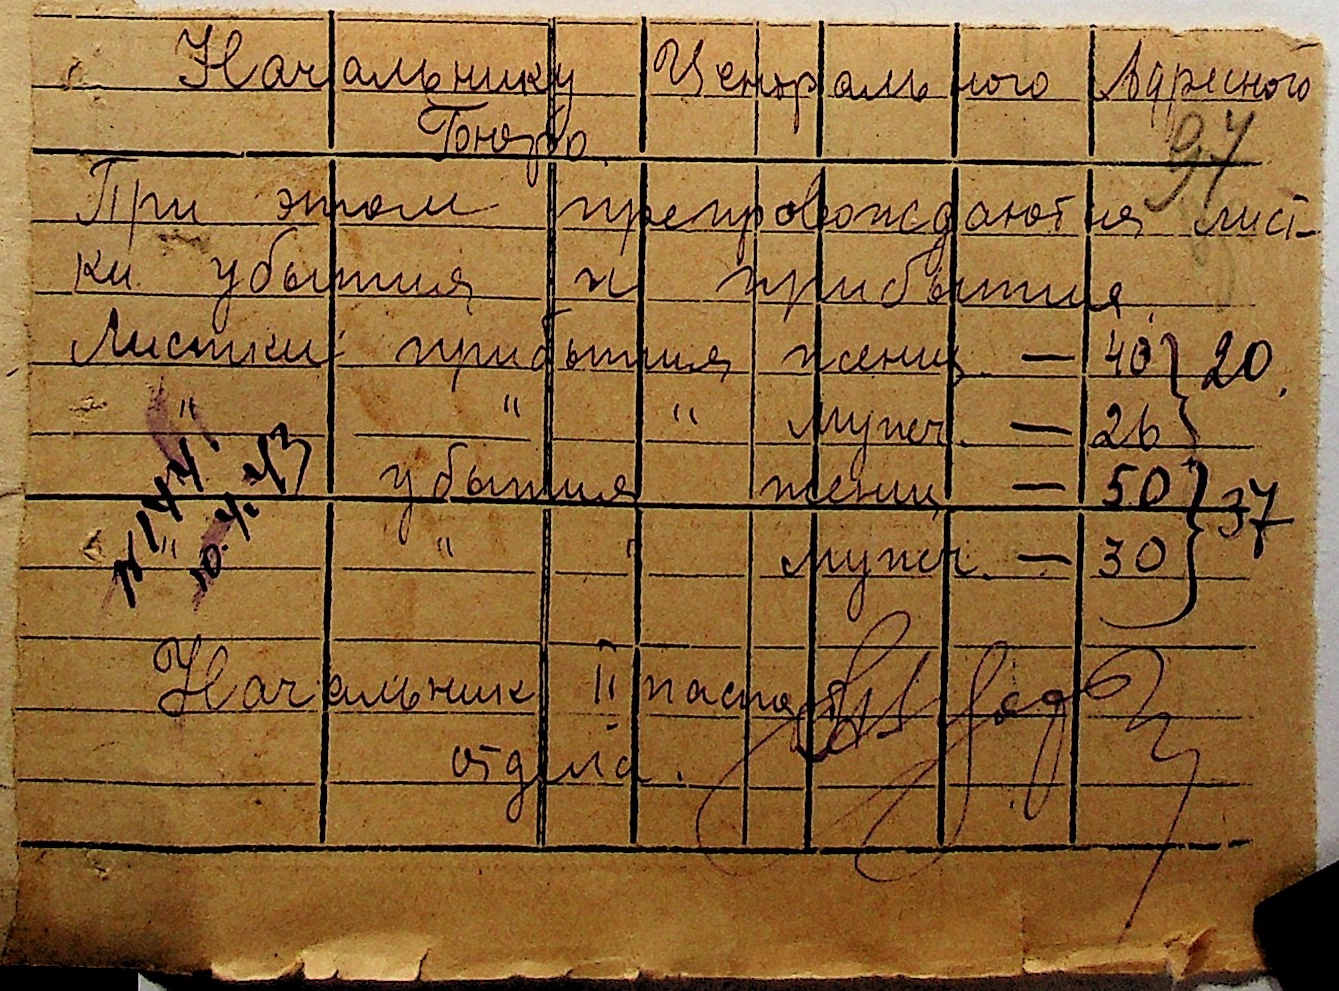 Начальнику Центрального Адресного
Бюро
97
При этом препровождаются лист-
ки убытия и прибытия
Листки прибытия женщ. — 40 } 20.
" " " мужч. — 26
убытия женщ — 50 } 37
" " " мужч. — 30
N 144.
10.4.43
Начальник II паспорт
отдела.